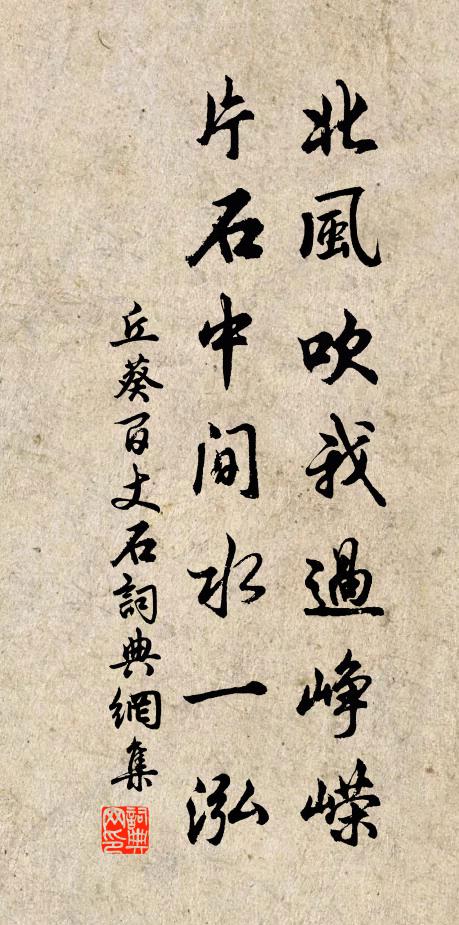 北風吹我過崢嶸
片石中間水一泓
丘葵百丈石詞典網集
詞典網印